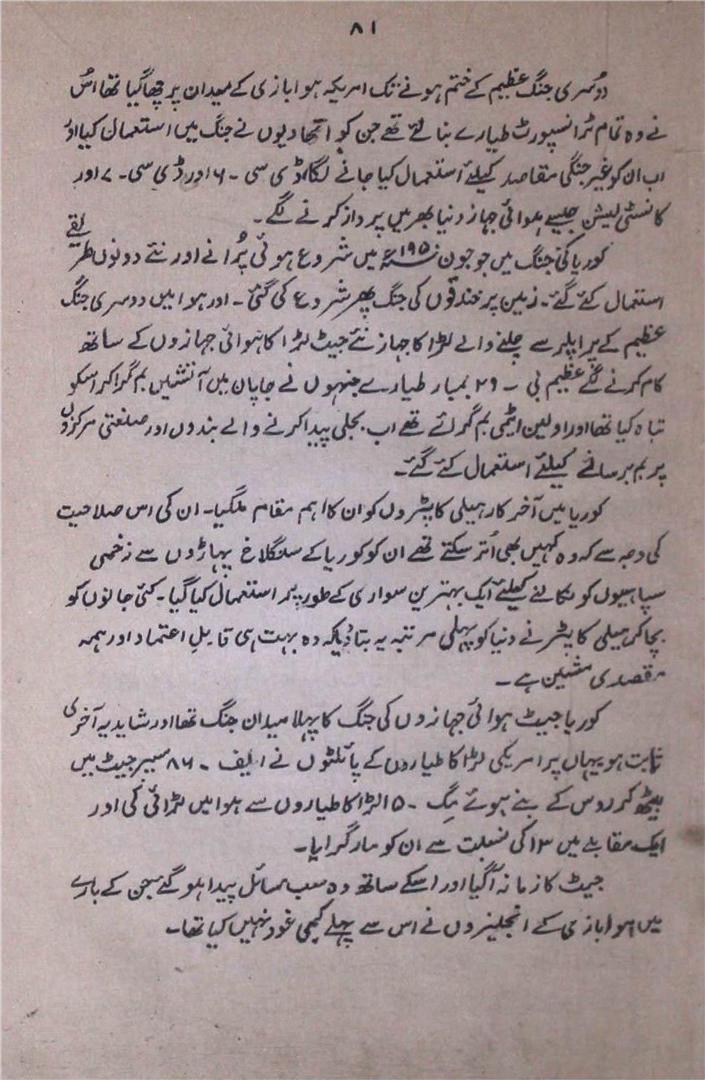 ۸۱
دوسری جنگ عظیم کے ختم ہونے تک امریکہ ہوابازی کے میدان پر چھا گیا تھا اس
نے وہ تمام ٹرانسپورٹ طیارے بنائے تھے جن کو اتحادیوں نے جنگ میں استعمال کیا اور
اب ان کو غیر جنگی مقاصد کیلئے استعمال کیا جانے لگا، ڈی سی ۔ ۶ اور ڈی سی ۔ ۷ اور
کانسٹی لیشن جیسے ہوائی جہاز دنیا بھر میں پرواز کرنے لگے ۔
کوریا کی جنگ میں جو جون ۱۹۵۰ء میں شروع ہوئی پُرانے اور نئے دونوں طریقے
استعمال کئے گئے ۔ زمین پر خندقوں کی جنگ پھر شروع کی گئی ۔ اور ہوا میں دوسری جنگ
عظیم کے پراپلر سے چلنے والے لڑاکا جہاز نئے جیٹ لڑاکا ہوائی جہازوں کے ساتھ
کام کرنے لگے عظیم بی ۔ ۲۹ بمبار طیارے جنہوں نے جاپان میں آتشیں بم گرا کر اسکو
تباہ کیا تھا اور اولین ایٹمی بم گرائے تھے اب بجلی پیدا کرنے والے بندوں اور صنعتی مرکزوں
پر بم برسانے کیلئے استعمال کئے گئے ۔
کوریا میں آخر کار ہیلی کاپٹروں کو ان کا اہم مقام مل گیا ۔ ان کی اس صلاحیت
کی وجہ سے کہ وہ کہیں بھی اُتر سکتے تھے ان کو کوریا کے سنگلاخ پہاڑوں سے زخمی
سپاہیوں کو نکالنے کیلئے ایک بہترین سواری کے طور پر استعمال کیا گیا ۔ کئی جانوں کو
بچا کر ہیلی کاپٹر نے دنیا کو پہلی مرتبہ یہ بتا دیا کہ وہ بہت ہی قابل اعتماد اور ہمہ
مقصدی مشین ہے ۔
کوریا جیٹ ہوائی جہازوں کی جنگ کا پہلا میدان جنگ تھا اور شاید یہ آخری
ثابت ہو یہاں پر امریکی لڑاکا طیاروں کے پائلٹوں نے ایف ۔ ۸۶ سیبر جیٹ میں
بیٹھ کر روس کے بنے ہوئے مِگ ۔ ۱۵ لڑاکا طیاروں سے ہوا میں لڑائی کی اور
ایک مقابلے میں ۱۳ کی نسبت سے ان کو مار گرایا ۔
جیٹ کا زمانہ آگیا اور اسکے ساتھ وہ سب مسائل پیدا ہو گئے جن کے بارے
میں ہوابازی کے انجینیروں نے اس سے پہلے کبھی غور نہیں کیا تھا ۔